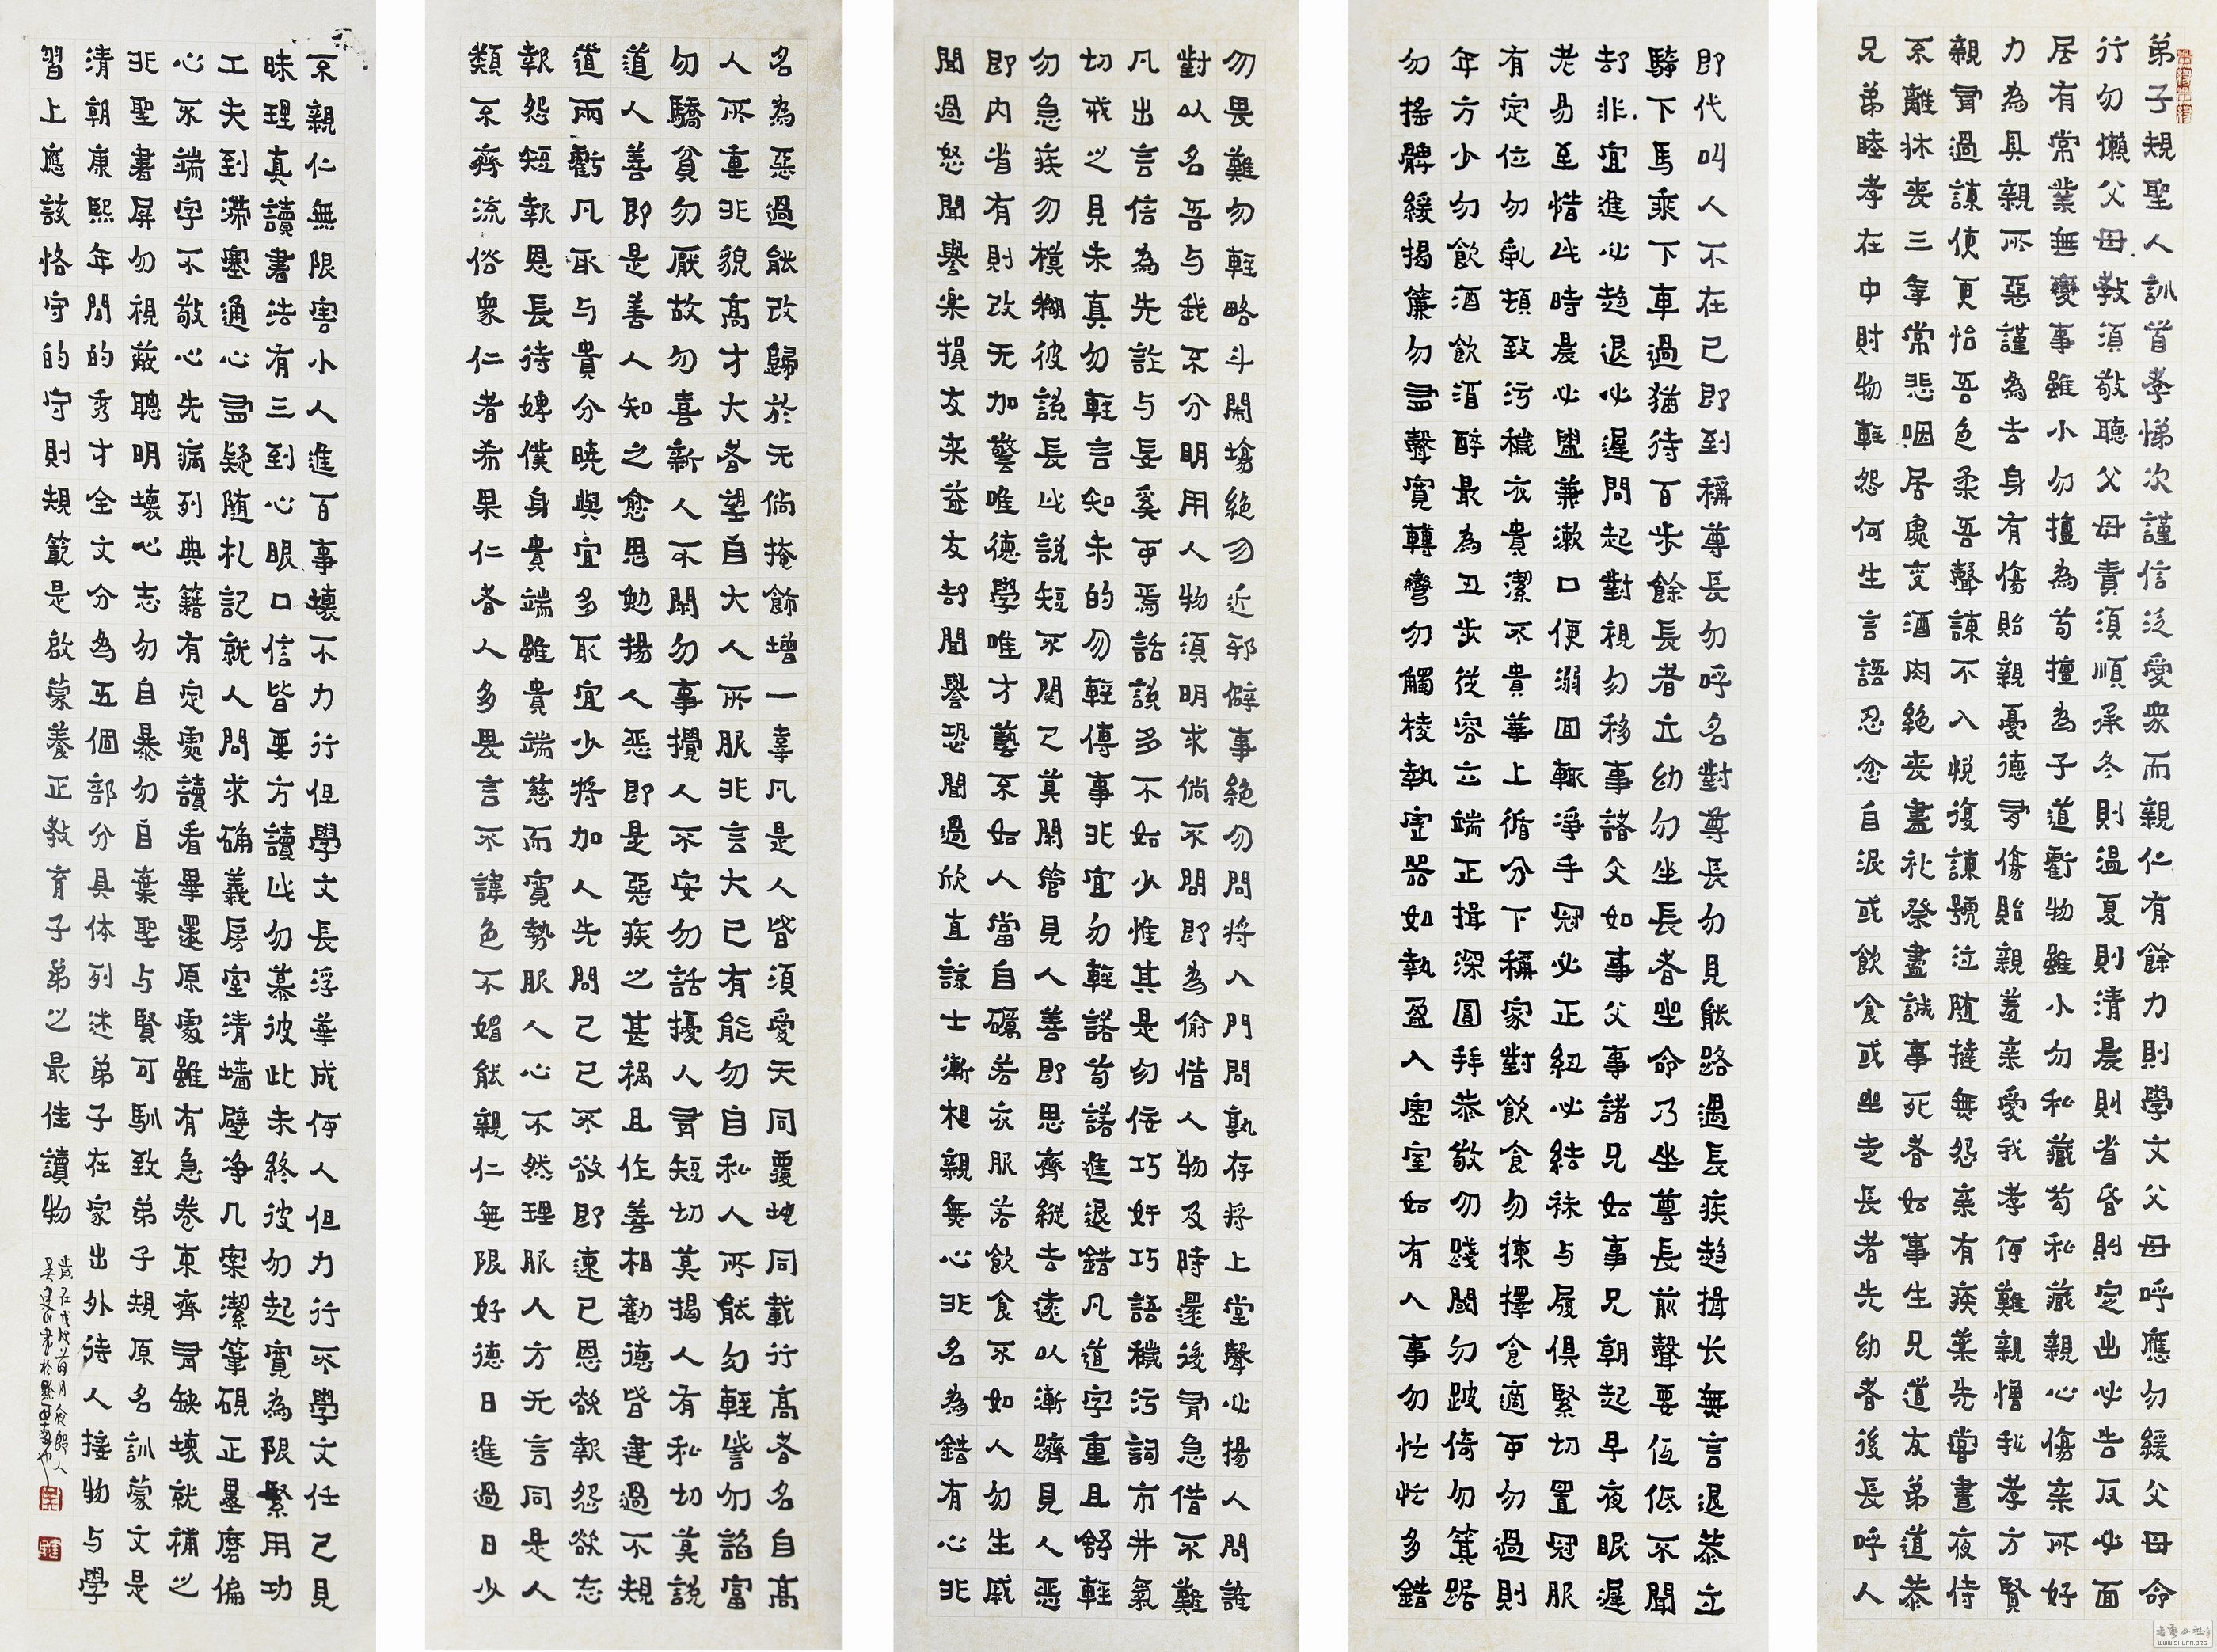 弟子規聖人訓首孝悌次謹信泛愛衆而親仁有餘力則學文父母呼應勿緩父母命
行勿懶父母教須敬聽父母責須順承冬則溫夏則清晨則省昏則定出必告反必面
居有常業無變事雖小勿擅為苟擅為子道虧物雖小勿私藏苟私藏親心傷亲所好
力為具親所惡謹為去身有傷貽親憂德有傷貽親羞亲愛我孝何難親憎我孝方賢
親有過諫使更怡吾色柔吾聲諫不入悅復諫號泣随撻無怨亲有疾藥先嘗晝夜侍
不離牀喪三年常悲咽居處變酒肉絕喪盡礼祭盡誠事死者如事生兄道友弟道恭
兄弟睦孝在中財物輕怨何生言語忍忿自泯或飲食或坐走長者先幼者後長呼人
即代叫人不在己即到稱尊長勿呼名對尊長勿見能路遇長疾趨揖长無言退恭立
騎下馬乘下車過猶待百步餘長者立幼勿坐長者坐命乃坐尊長前聲要低低不聞
却非宜進必趨退必遲問起對視勿移事諸父如事父事諸兄如事兄朝起早夜眠遲
老易至惜此時晨必盥兼漱口便溺回輒淨手冠必正紐必結袜与履俱緊切置冠服
有定位勿亂頓致污穢衣貴潔不貴華上循分下稱家對飲食勿揀擇食適可勿過則
年方少勿飲酒飲酒醉最為丑步從容立端正揖深圓拜恭敬勿踐閾勿跛倚勿箕踞
勿搖髀緩揭簾勿有聲寬轉彎勿觸棱執虛器如執盈入虛室如有人事勿忙忙多錯
勿畏難勿輕略斗鬧場絕勿近邪僻事絕勿問將入門問孰存將上堂聲必揚人問誰
對以名吾与我不分明用人物須明求倘不問即為偷借人物及時還後有急借不難
凡出言信為先詐与妄奚可焉話說多不如少惟其是勿佞巧奸巧語穢污詞市井氣
切戒之見未真勿輕言知未的勿輕傳事非宜勿輕諾苟諾進退錯凡道字重且舒輕
勿急疾勿模糊彼說長此說短不関己莫閑管見人善即思齊縱去遠以漸躋見人惡
即內省有則改无加警唯德學唯才藝不如人當自礪若衣服若飲食不如人勿生戚
聞過怒聞譽楽損友来益友却聞譽恐聞過欣直諒士漸相親無心非名為錯有心非
名為惡過能改歸於无倘掩飾增一辜凡是人皆須愛天同覆地同載行高者名自高
人所重非貌高才大者望自大人所服非言大己有能勿自私人所能勿輕訾勿諂富
勿驕貧勿厭故勿喜新人不閑勿事攪人不安勿話擾人有短切莫揭人有私切莫說
道人善即是善人知之愈思勉揚人惡即是惡疾之甚禍且作善相勸德皆建過不規
道兩虧凡取与貴分曉與宜多取宜少將加人先問己己不欲即速已恩欲報怨欲忘
報怨短報恩長待婢僕身貴端雖貴端慈而寬勢服人心不然理服人方无言同是人
類不齊流俗衆仁者希果仁者人多畏言不諱色不媚能親仁無限好德日進過日少
不親仁無限害小人進百事壞不力行但學文長浮華成何人但力行不學文任己見
昧理真讀書法有三到心眼口信皆要方讀此勿慕彼此未終彼勿起寬為限緊用功
工夫到滯塞通心有疑随札記就人問求确義房室清墙壁净几案潔筆硯正墨磨偏
心不端字不敬心先病列典籍有定處讀看畢還原處雖有急卷束齊有缺壞就補之
非聖書屏勿視蔽聰明壞心志勿自暴勿自棄聖与賢可馴致弟子規原名訓蒙文是
清朝康熙年間的秀才全文分為五個部分具体列述弟子在家出外待人接物与學
習上應該恪守的守則規範是啟蒙養正教育子弟之最佳讀物
歲在戊戌
WWW.SHUFA.ORG